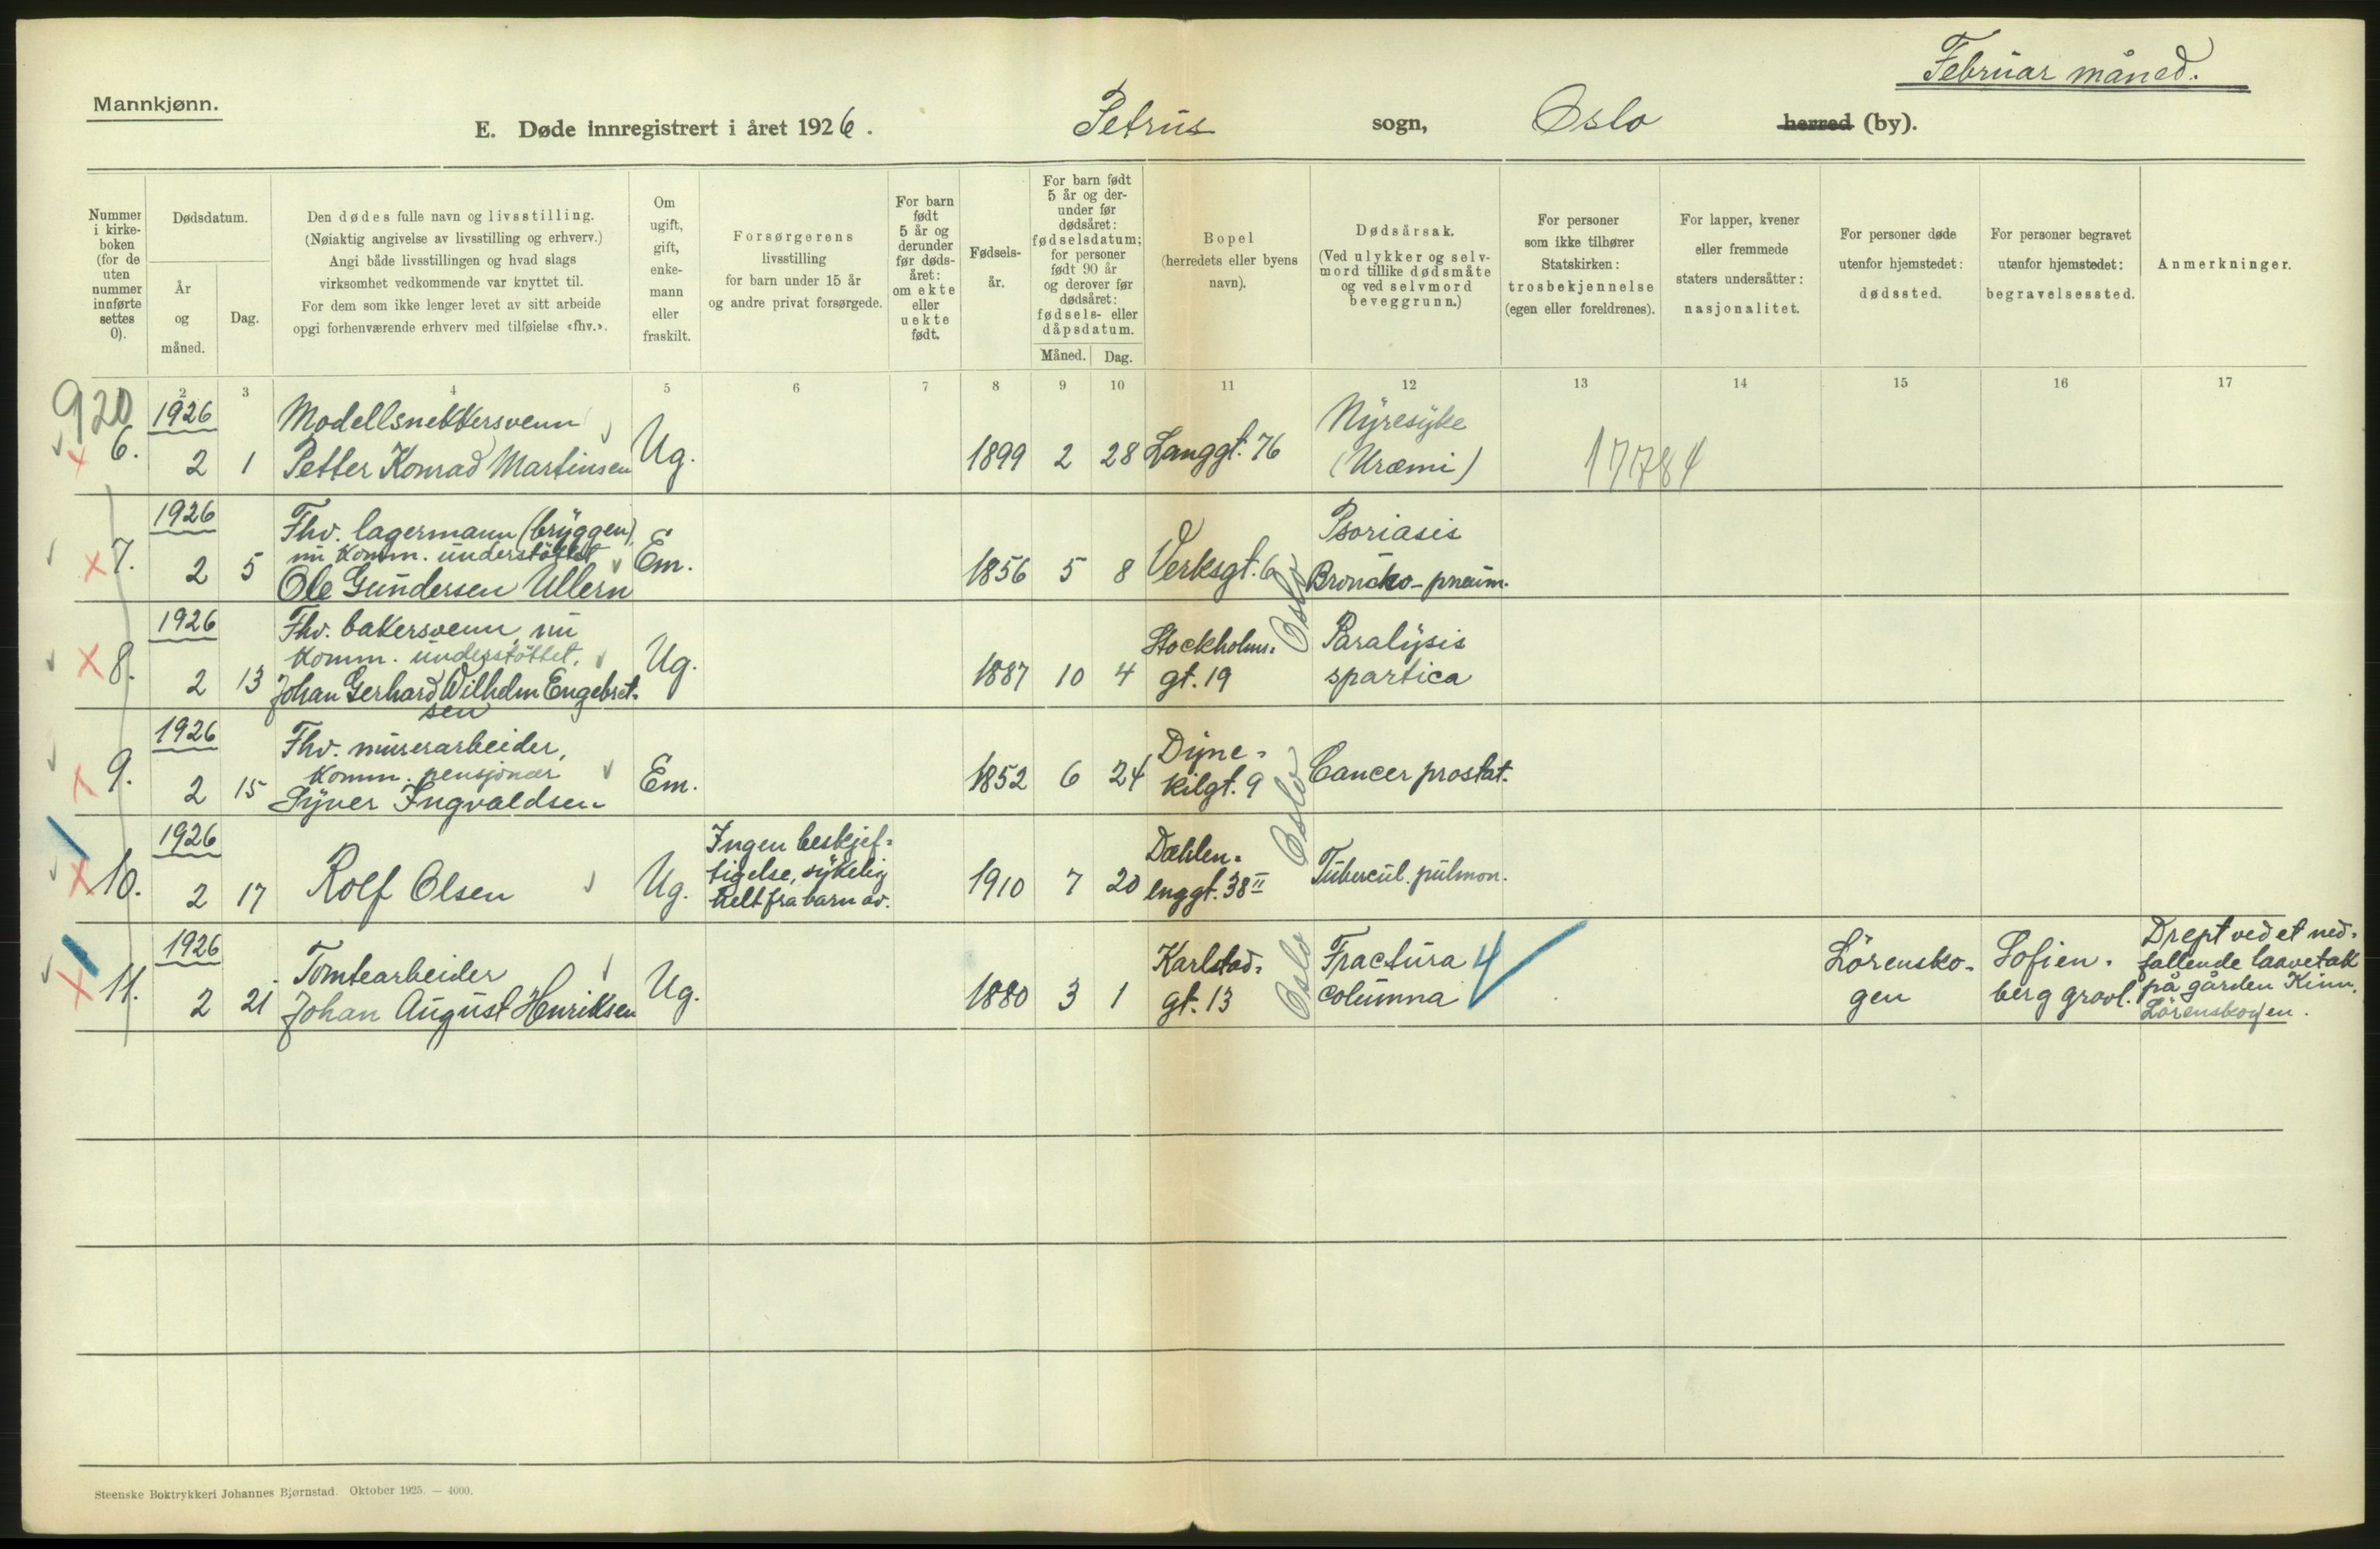 Februar måned.
Mannkjønn.
E. Døde innregistrert i året 1926. Petrus sogn, Oslo herred (by).
Nummer i kirkeboken (for de uten nummer innførte settes 0).
Dødsdatum.
År og måned.
Dag.
Den dødes fulle navn og livsstilling.
(Nøiaktig angivelse av livsstilling og erhverv.)
Angi både livsstillingen og hvad slags
virksomhet vedkommende var knyttet til.
For dem som ikke lenger levet av sitt arbeide
opgi forhenværende erhverv med tilføielse «fhv.».
Om
ugift,
gift,
enke-
mann
eller
fraskilt.
Forsørgerens
livsstilling
for barn under 15 år
og andre privat forsørgede.
For barn
født
5 år og
derunder
før døds-
året:
om ekte
eller
uekte
født.
Fødsels-
år.
For barn født
5 år og der-
under før
dødsåret:
fødselsdatum;
for personer
født 90 år
og derover før
dødsåret:
fødsels- eller
dåpsdatum.
Måned. Dag.
Bopel
(herredets eller byens
navn).
Dødsårsak.
(Ved ulykker og selv-
mord tillike dødsmåte
og ved selvmord
beveggrunn.)
For personer
som ikke tilhører
Statskirken:
trosbekjennelse
(egen eller foreldrenes).
For lapper, kvener
eller fremmede
staters undersåtter:
nasjonalitet.
For personer døde
utenfor hjemstedet:
dødssted.
For personer begravet
utenfor hjemstedet:
begravelsessted.
Anmerkninger.
2 3 4 5 6 7 8 9 10 11 12 13 14 15 16 17
920
6.
1926
2 1
Modellsnekkersvenn
Petter Konrad Martinsen
Ug.
1899 2 28
Langgt. 76
Nyresyke
(Uræmi)
17784
7.
1926
2 5
Fhv. lagermann (bryggen),
nu komm. understøttet
Ole Gundersen Ullern
Em.
1856 5 8
Verksgt. 6
Oslo
Psoriasis
Broncho-pneum.
8.
1926
2 13
Fhv. bakersvenn, nu
komm. understøttet.
Johan Gerhard Wilhelm Engebret-
sen
Ug.
1887 10 4
Stockholms-
gt. 19
Paralysis
spartica
9.
1926
2 15
Fhv. murerarbeider,
komm. pensjonær
Syver Ingvaldsen
Em.
1852 6 24
Dyne-
kilgt. 9
Oslo
Cancer prostat.
10.
1926
2 17
Rolf Olsen
Ug.
Ingen beskjef-
tigelse, sykelig
helt fra barn av.
1910 7 20
Dæhlen-
enggt. 38 II
Tubercul. pulmon.
11.
1926
2 21
Tomtearbeider
Johan August Henriksen
Ug.
1880 3 1
Karlstad-
gt. 13
Oslo
Fractura
columna
4
Lörensko-
gen
Sofien-
berg gravl.
Drept ved et ned-
fallende laavetak
på gården Kinn,
Lörenskogen.
Steenske Boktrykkeri Johannes Bjørnstad. Oktober 1925. — 4000.